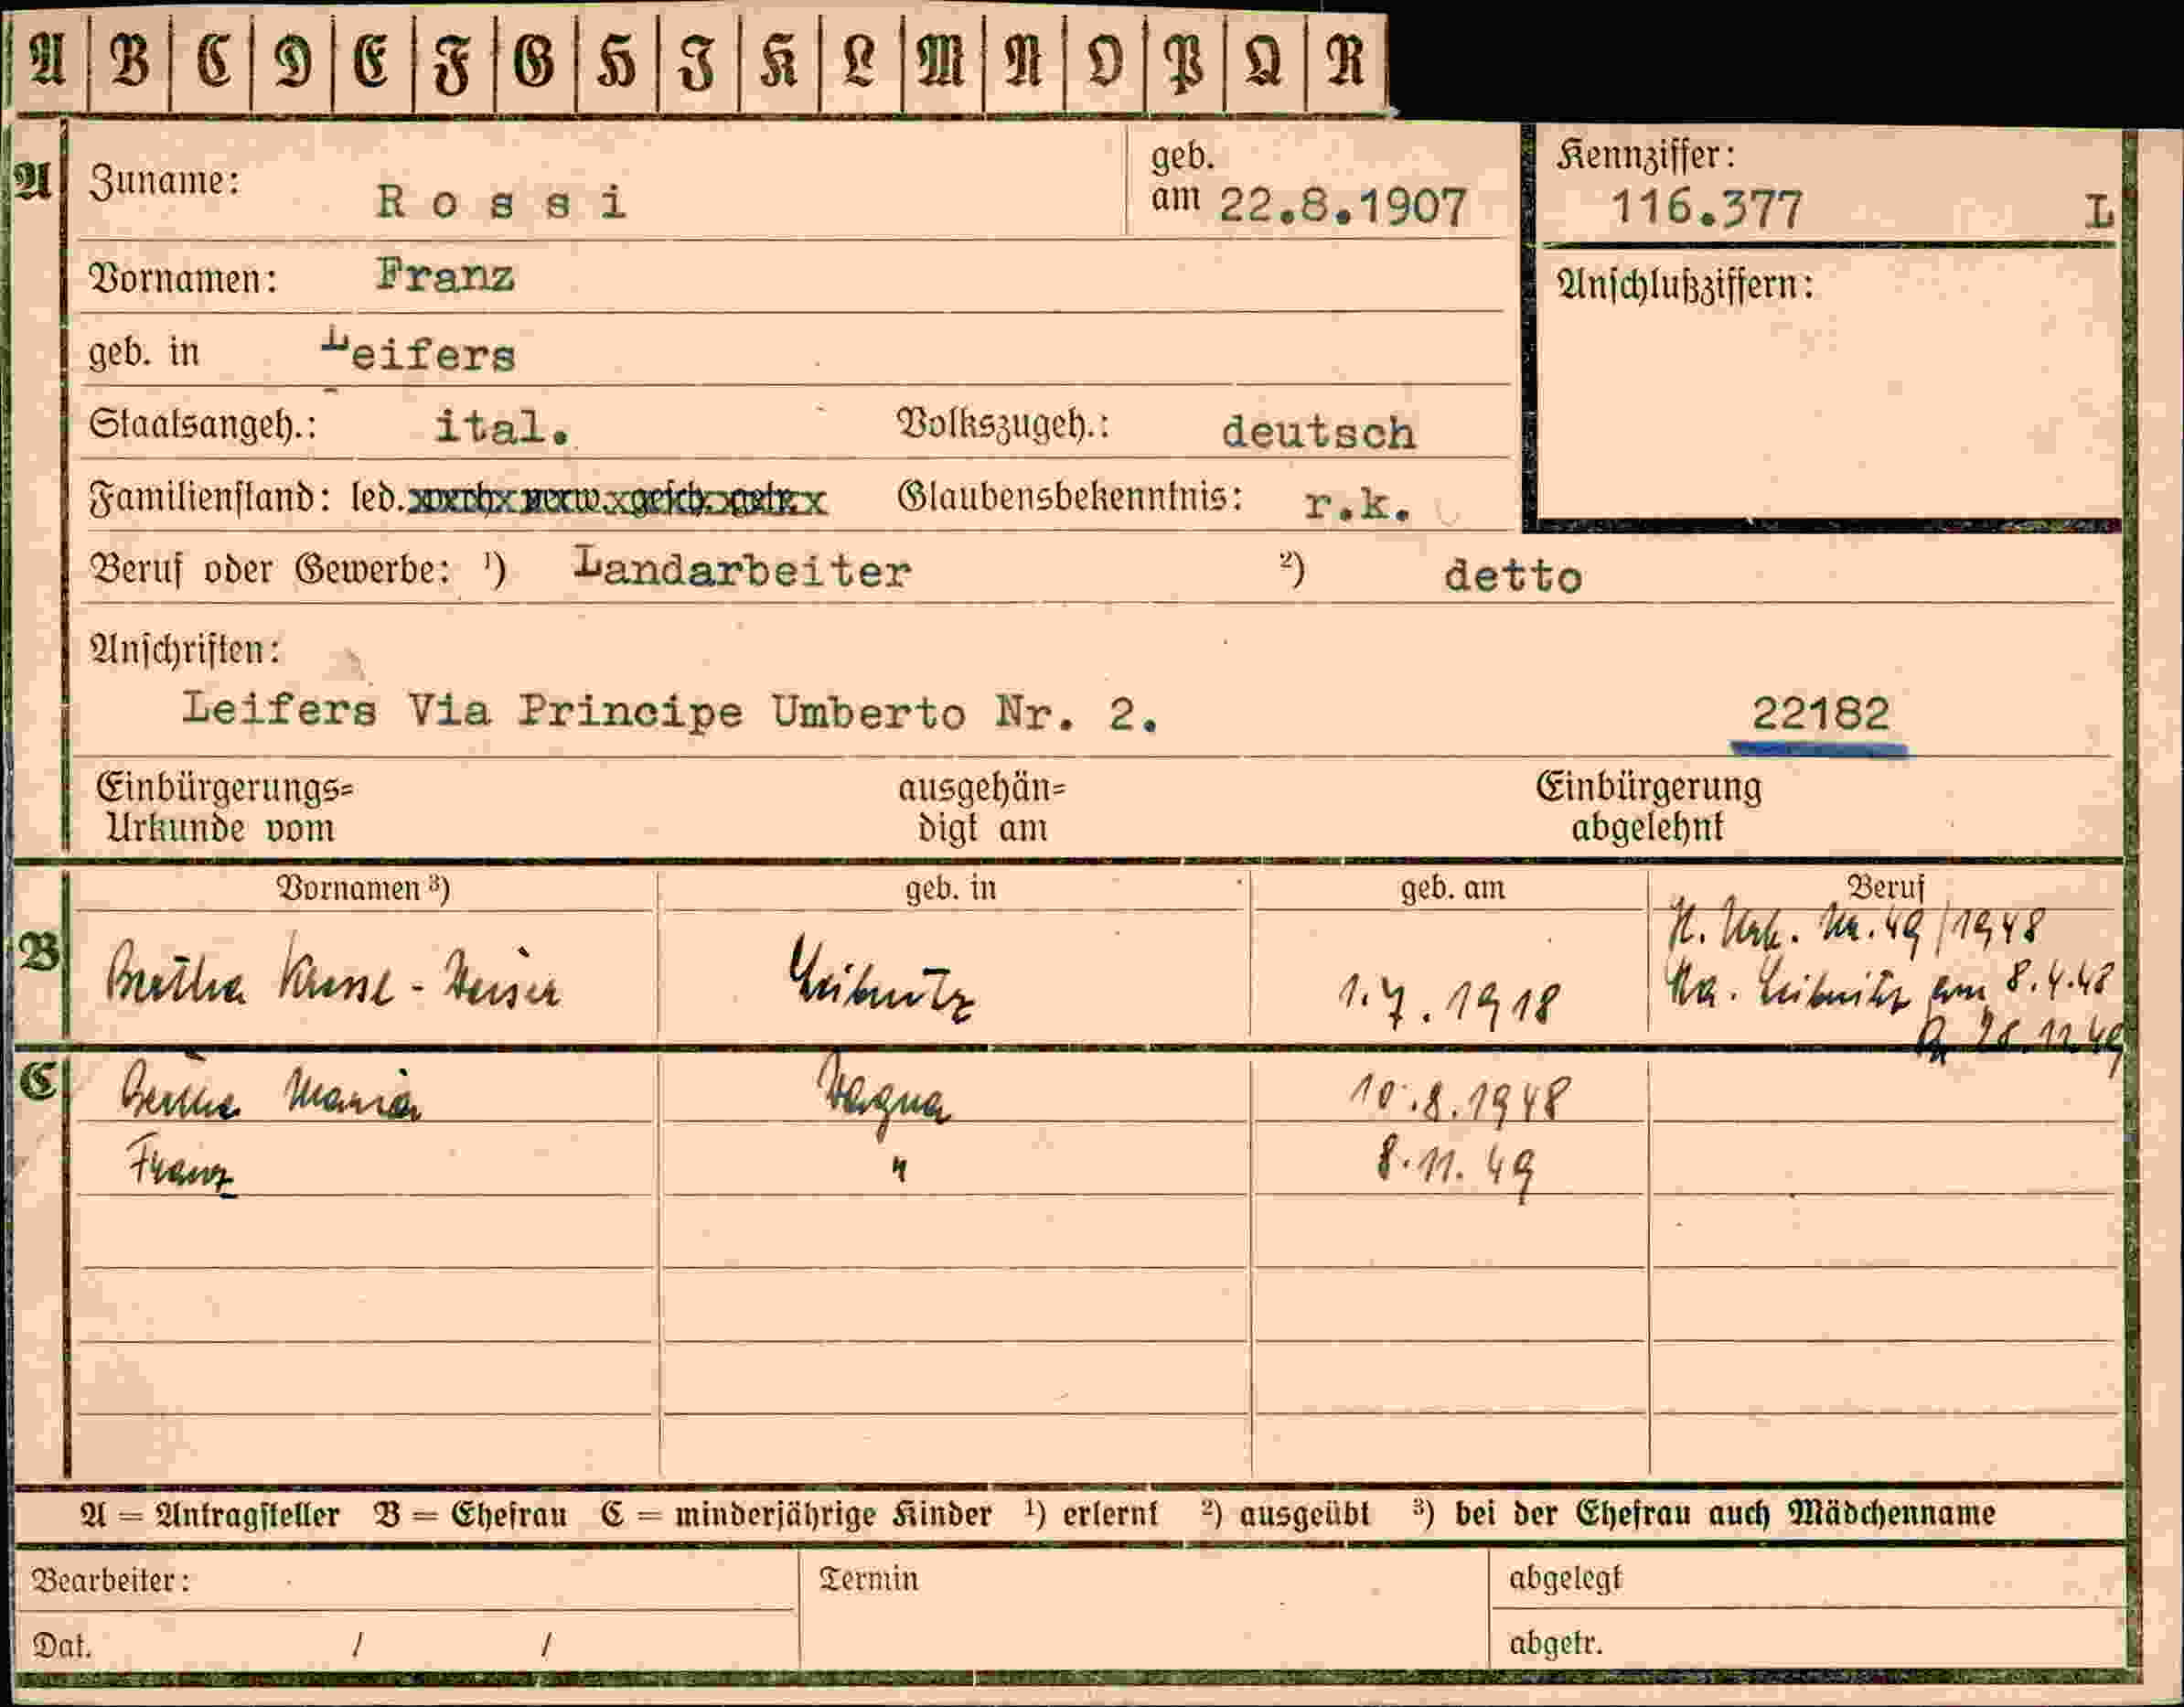 A B C D E F G H I K L M N O P Q R
A Zuname: Rossi geb. am 22.8.1907
Kennziffer: 116.377 L
Vornamen: Franz
Anschlußziffern:
geb. in Leifers
Staatsangeh.: ital. Volkszugeh.: deutsch
Familienstand: led. Glaubensbekenntnis: r.k.
Beruf oder Gewerbe: ¹) Landarbeiter ²) detto
Anschriften:
Leifers Via Principe Umberto Nr. 2. 22182
Einbürgerungs= ausgehän= Einbürgerung
Urkunde vom digt am abgelehnt
Vornamen ³) geb. in geb. am Beruf
H. Urk. Nr. 49/1948
B Bertha Leibnitz 1.7.1918 Leibnitz am 8.4.48
28.11.49
C Bertha Maria Wagna 10.8.1948
Franz " 8.11.49
A = Antragsteller B = Ehefrau C = minderjährige Kinder ¹) erlernt ²) ausgeübt ³) bei der Ehefrau auch Mädchenname
Bearbeiter: Termin abgelegt
Dat. / / abgetr.